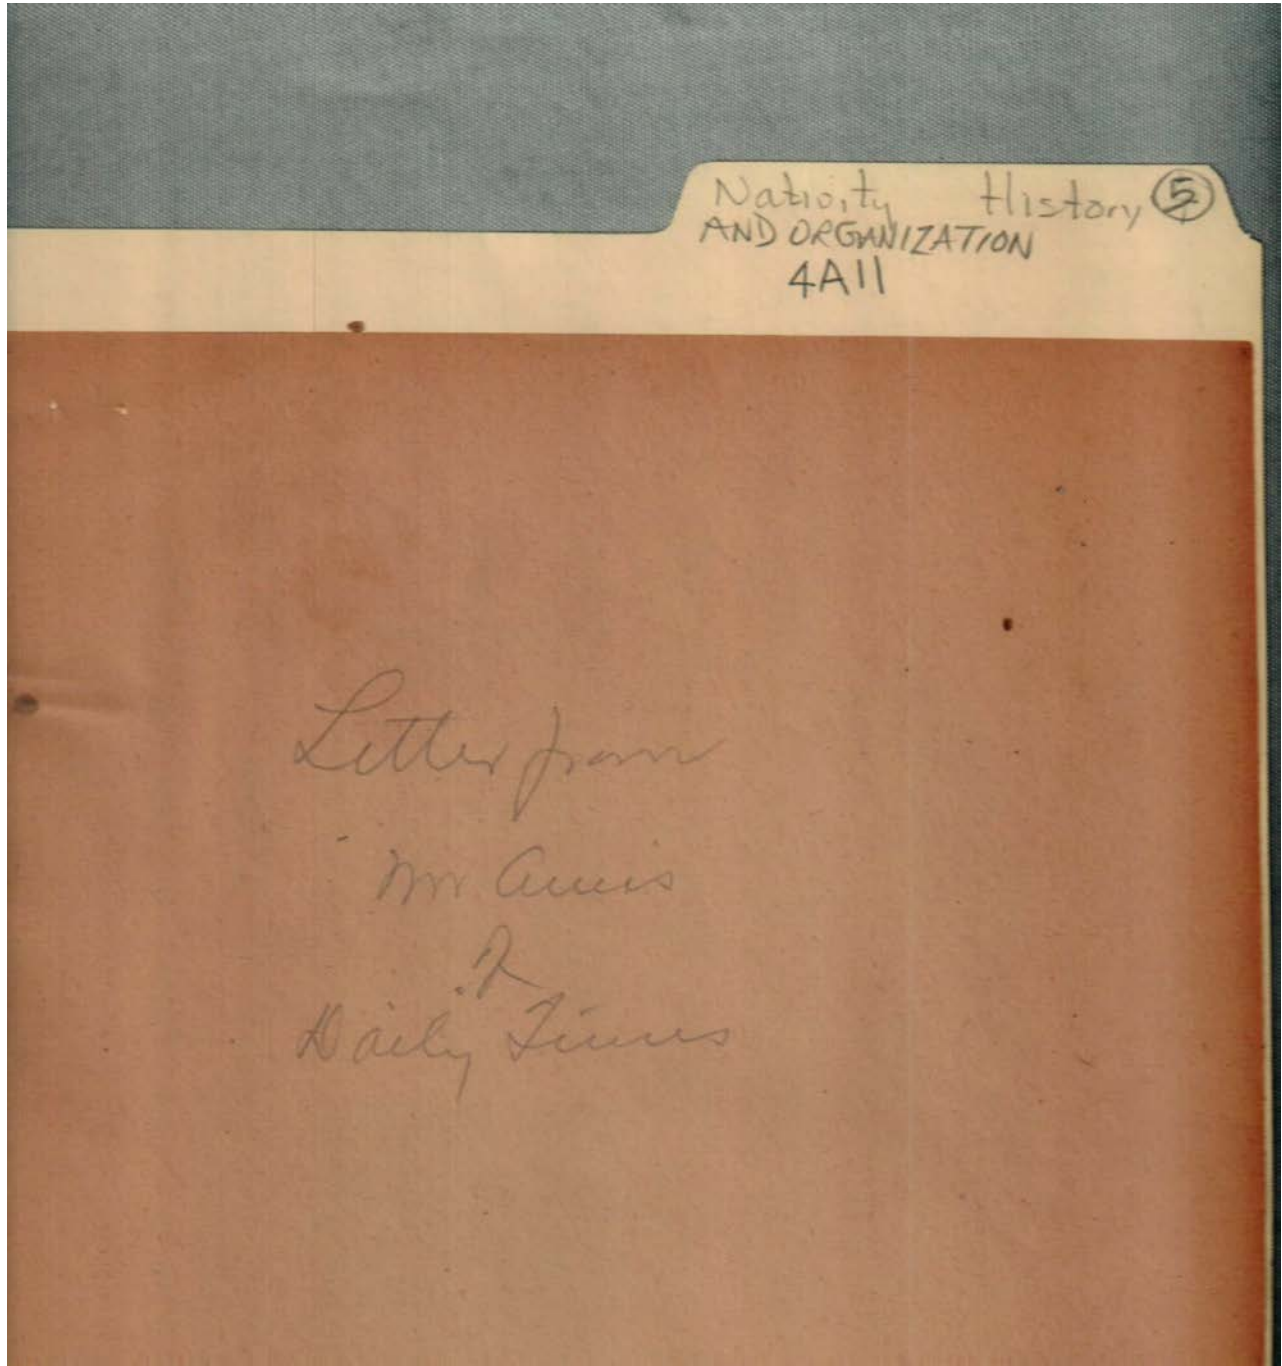 Nativity History 5
AND ORGANIZATION
4A11
Letter from
Mr
Daily Times